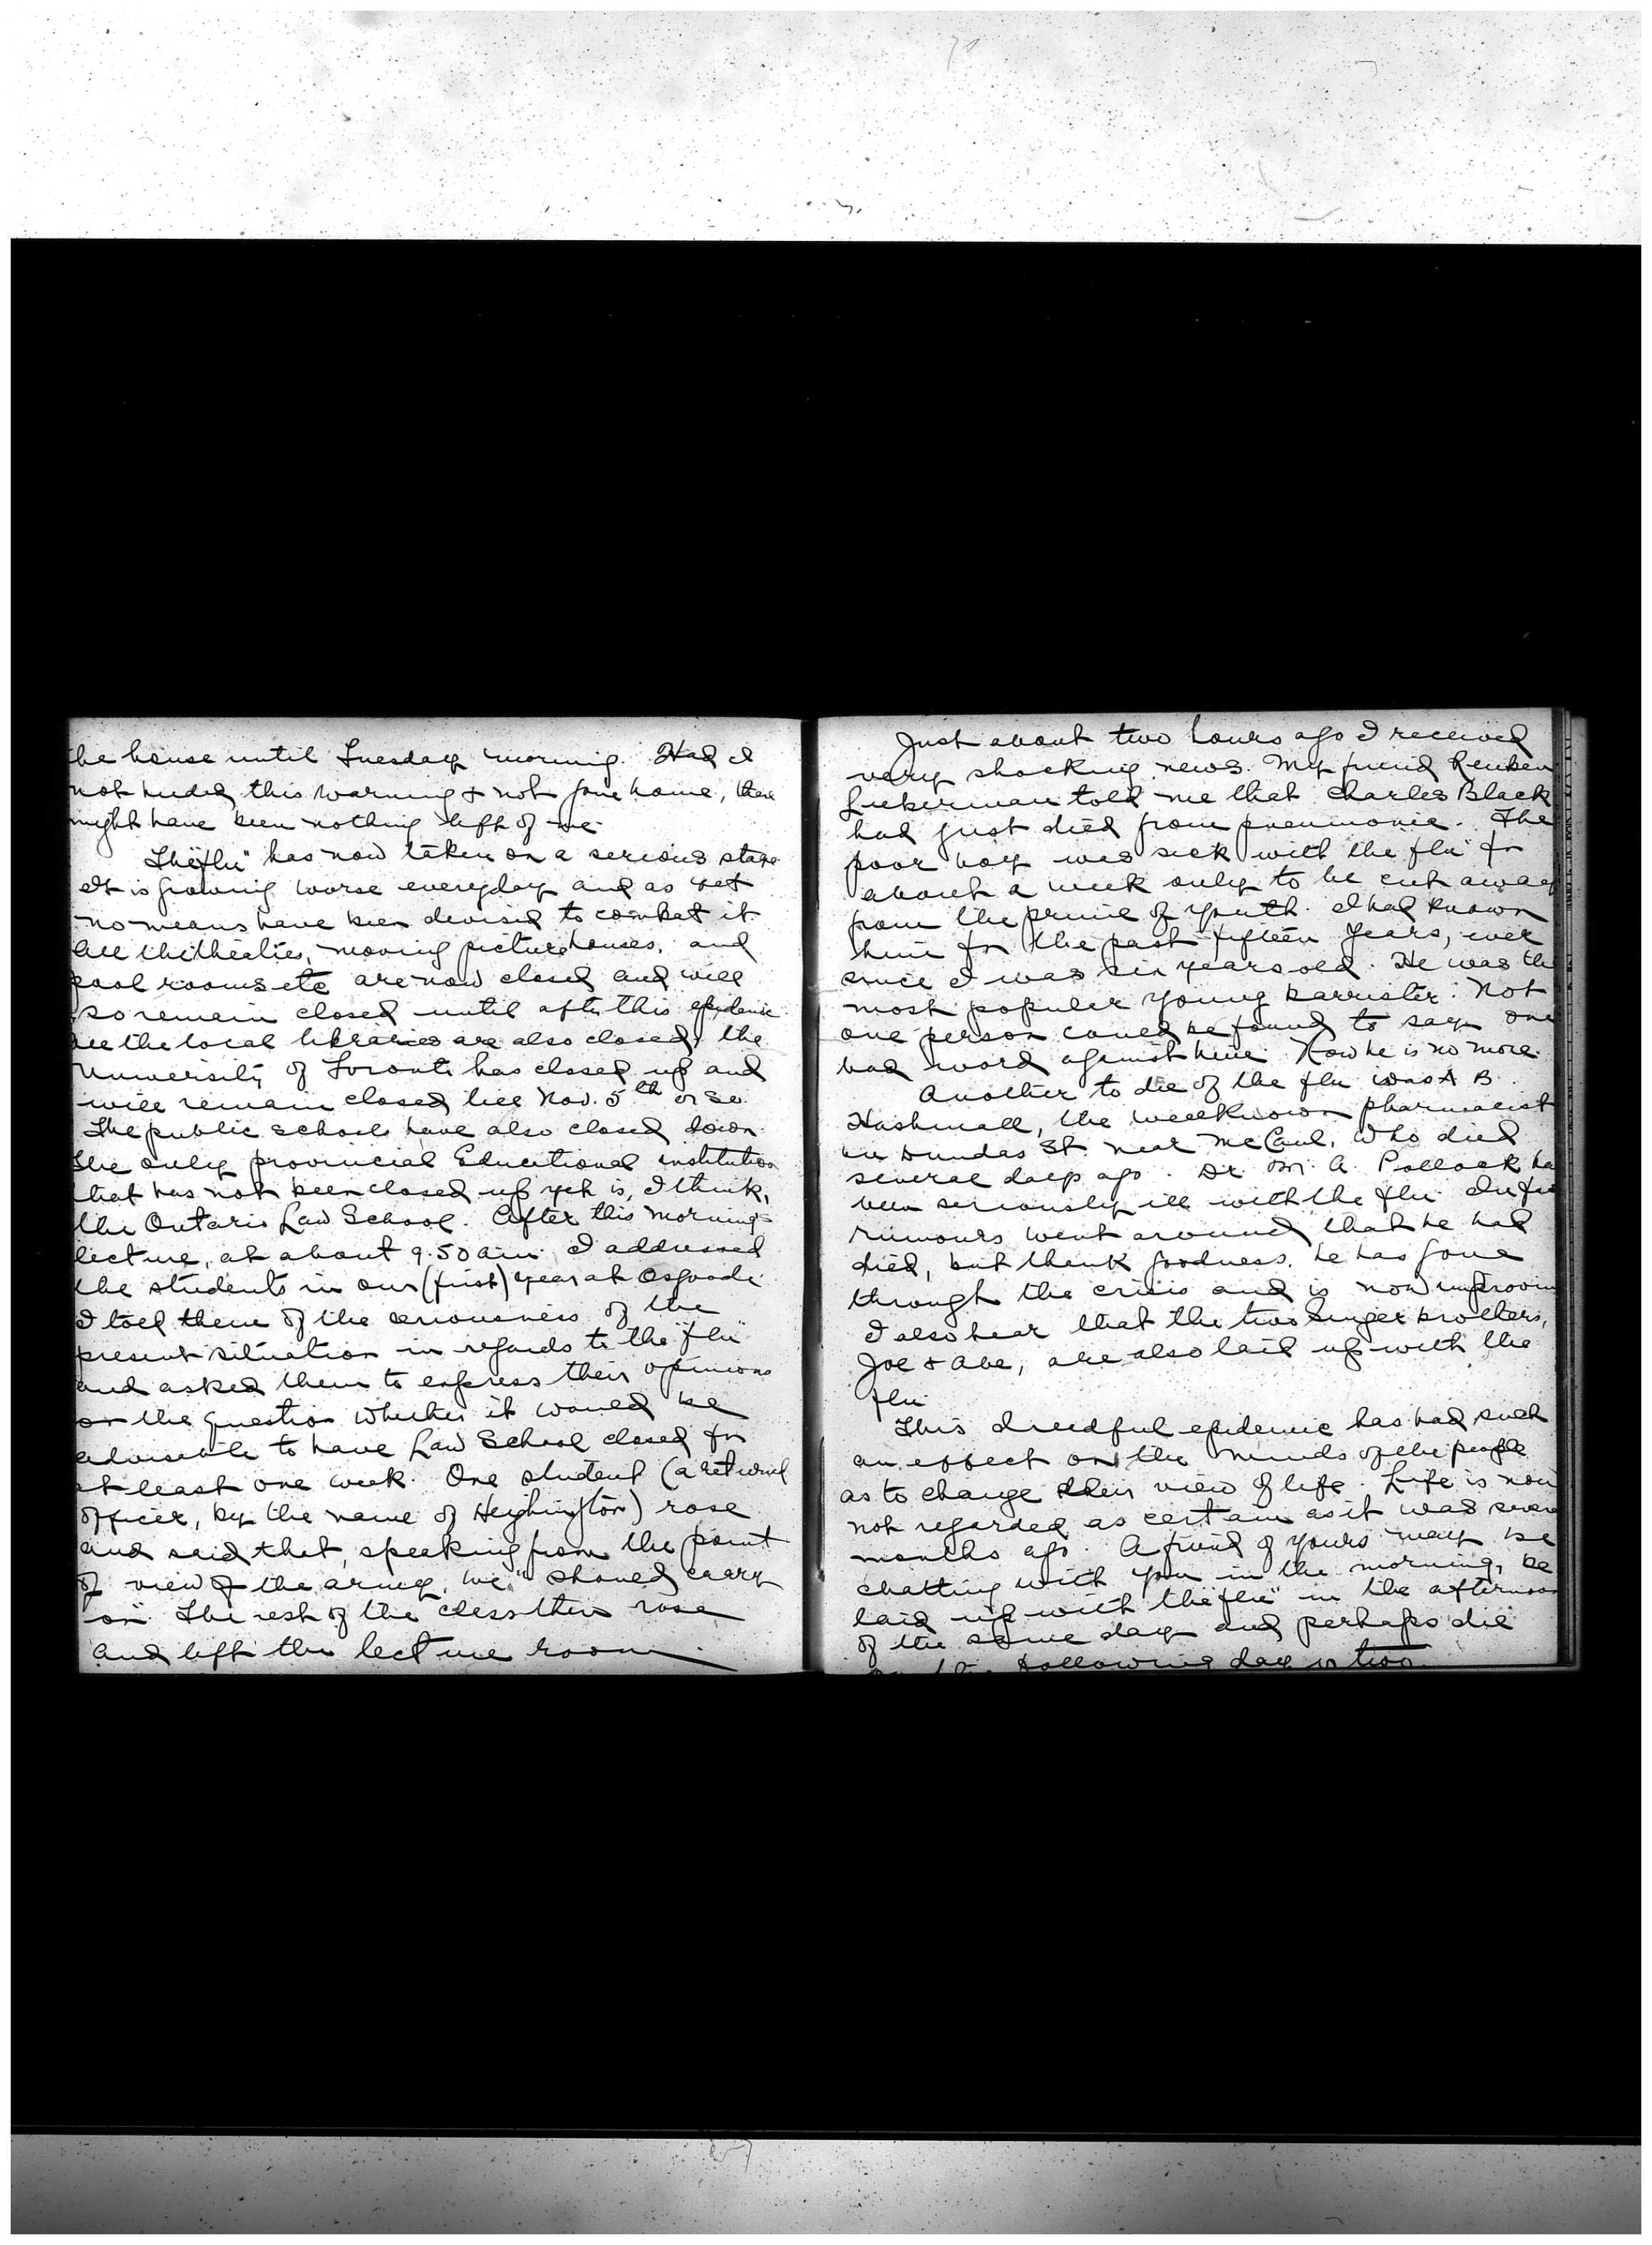 the house until Tuesday morning. Had I
not heeded this warning & not gone home, there
might have been nothing left of me.
The "flu" has now taken on a serious stage
It is growing worse everyday and as yet
no means have been devised to combat it.
All the theatres, moving picture houses, and
pool rooms etc are now closed and will
so remain closed until after this epidemic
All the local libraries are also closed, the
University of Toronto has closed up and
will remain closed till Nov. 5th or so.
The public schools have also closed down.
The only provincial Educational institution
that has not been closed up yet is, I think,
the Ontario Law School. After this morning's
lecture, at about 9.50 a.m. I addressed
the students in our (first) year at Osgoode.
I told them of the seriousness of the
present situation in regards to the "flu"
and asked them to express their opinions
on the question whether it would be
advisable to have Law School closed for
at least one week. One student (a returned
officer, by the name of Heighington) rose
and said that, speaking from the point
of view of the army, we "should carry
on". The rest of the class then rose
and left the lecture room.
Just about two hours ago I received
very shocking news. My friend Reuben
told me that Charles Black
had just died from pneumonia. The
poor boy was sick with the flu for
about a week only to be cut away
from the prime of youth. I had known
him for the past fifteen years, ever
since I was six years old. He was the
most popular young barrister. Not
one person could be found to say one
bad word against him. Now he is no more.
Another to die of the flu was A B.
Hashmall, the wellknown pharmacist
on Dundas St. near McCaul, who died
several days ago. Dr. M. A. Pollock ha
been seriously ill with the flu. In fac
rumours went around that he had
died, but thank goodness, he has gone
through the crisis and is now improvin
I also hear that the two Singer brothers,
Joe & Abe, are also laid up with the
flu.
This dreadful epidemic has had such
an effect on the minds of the people
as to change their view of life. Life is now
not regarded as certain as it was seven
months ago. A friend of yours may be
chatting with you in the morning, be
laid up with the "flu" in the afternoon
of the same day and perhaps die
following day or two.